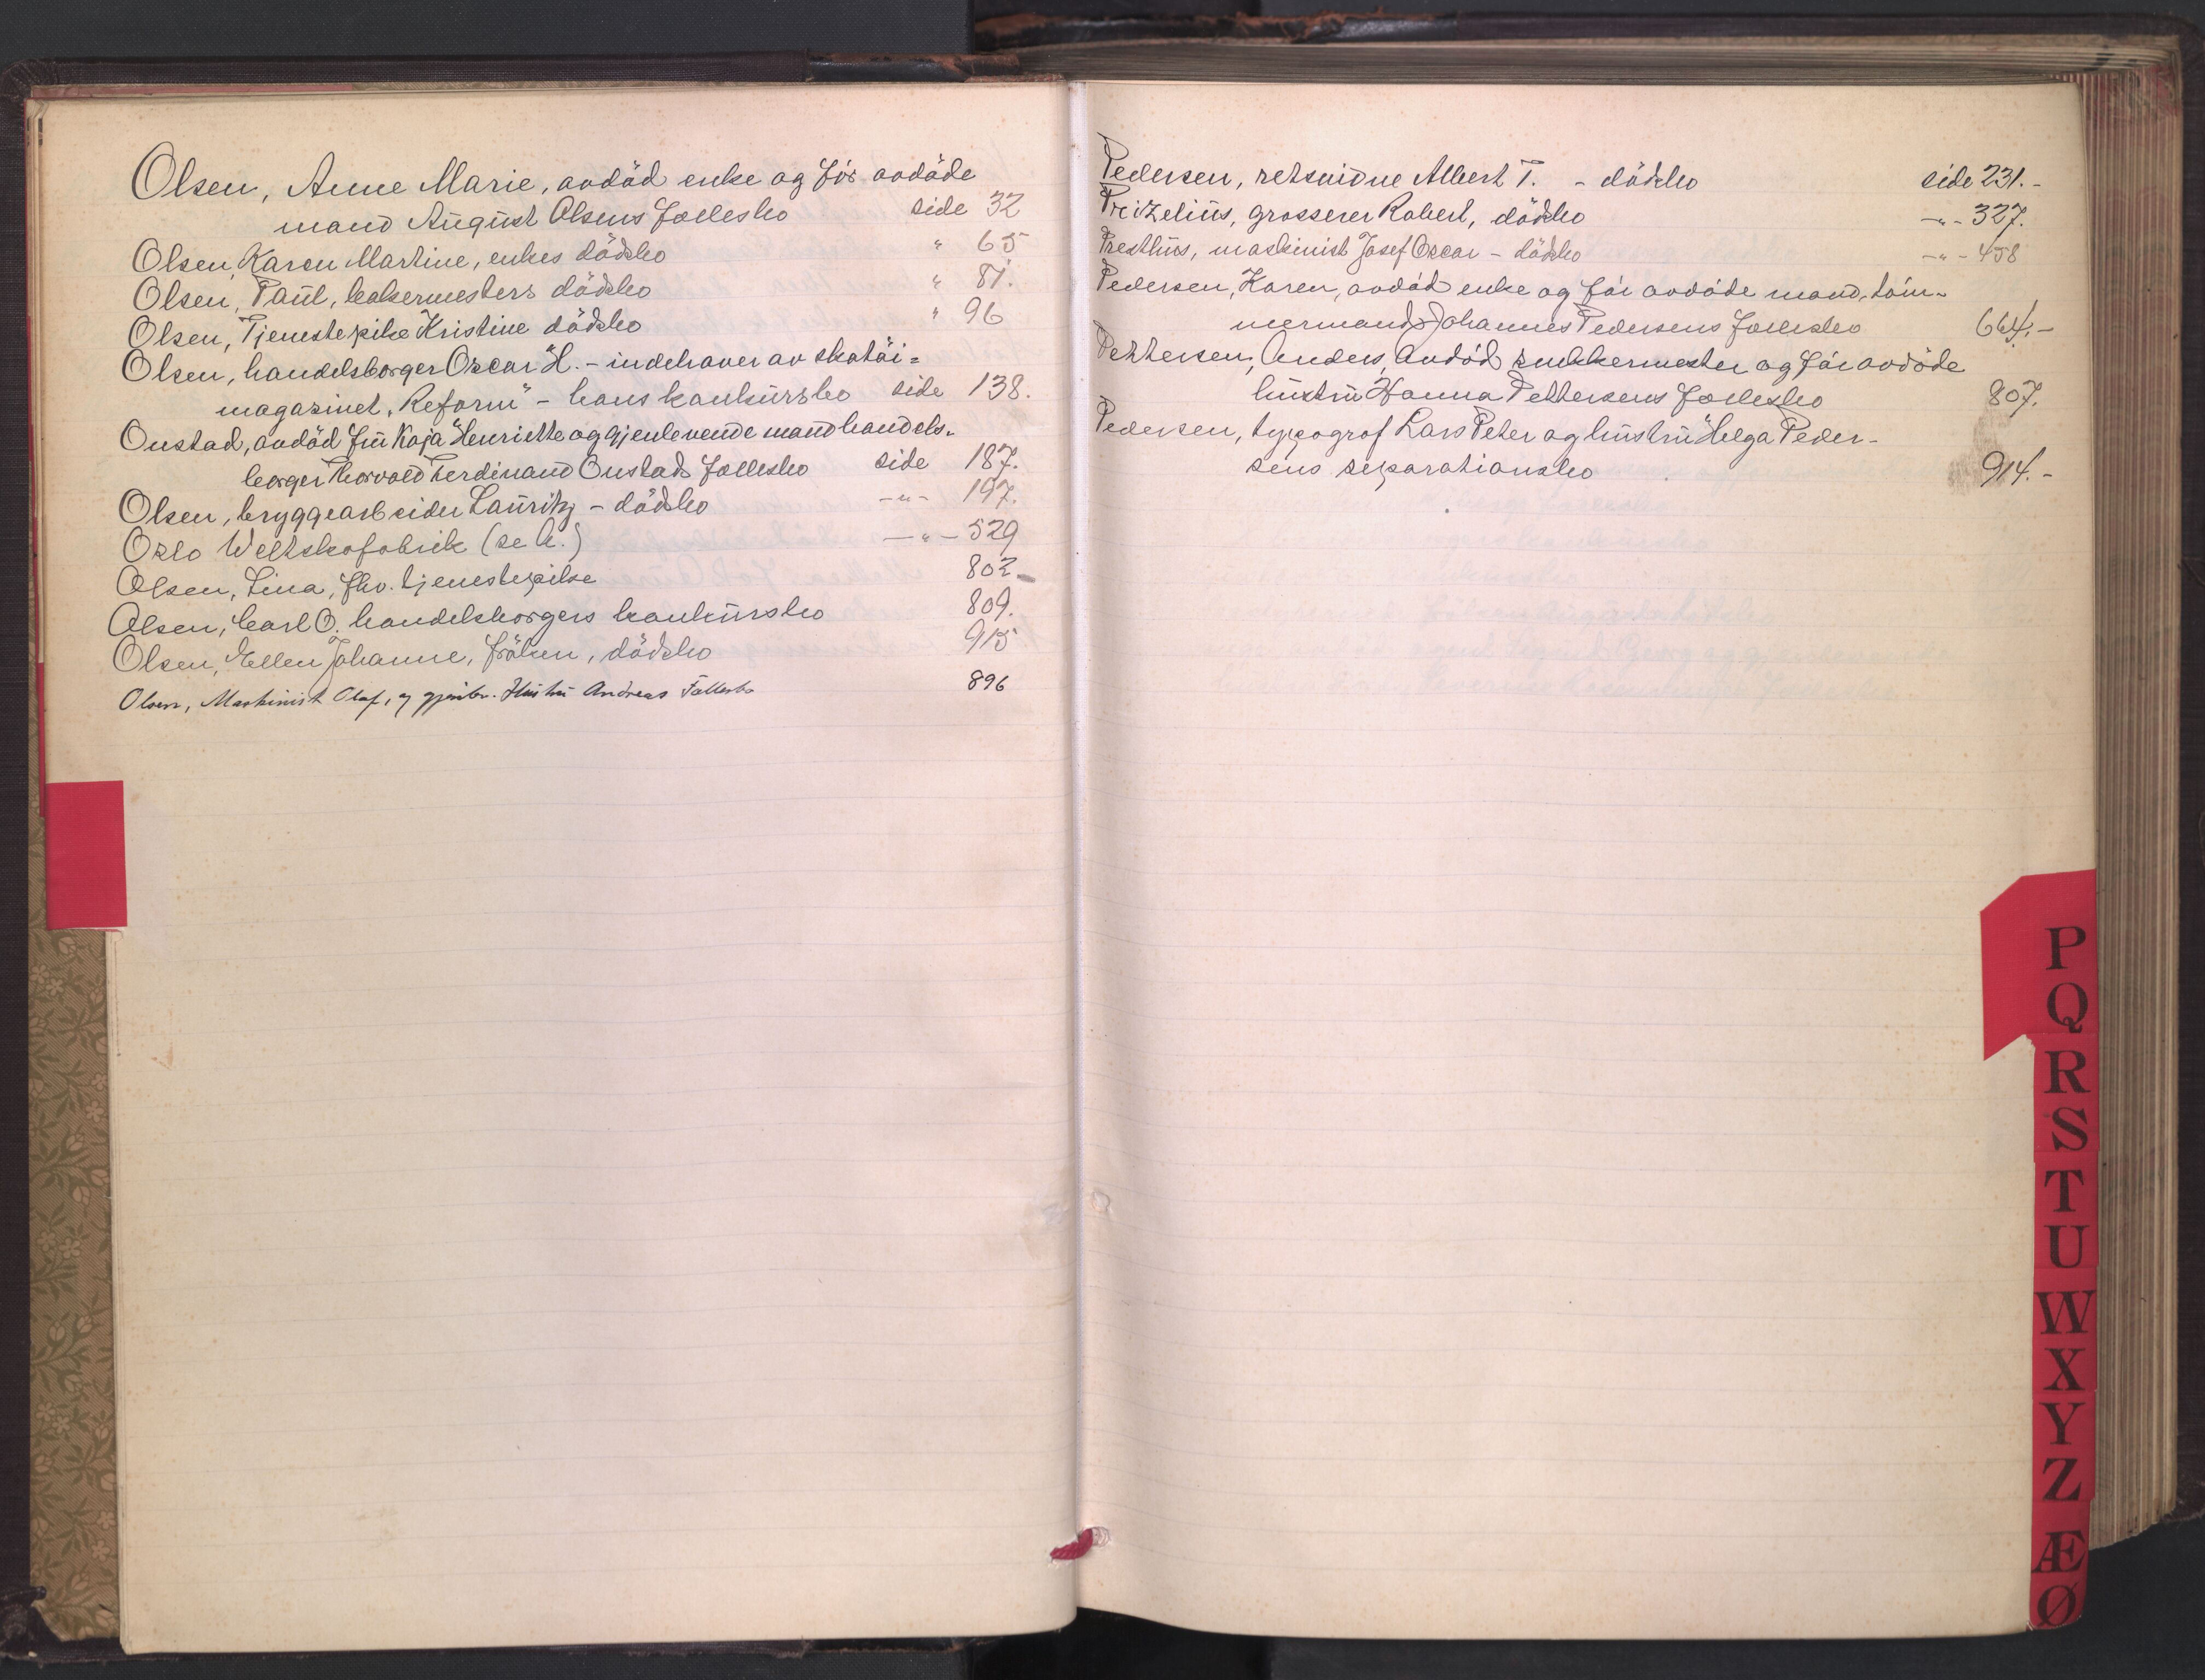 Olsen, Anne Marie, avdød enke og før avdøde
mand August Olsens fællesbo side 32
Olsen, Karen Martine, enkes dødsbo " 65
Olsen, Paul, bakermesters dødsbo " 81.
Olsen, Tjenestepike Kristine dødsbo " 96
Olsen, handelsborger Oscar H. - indehaver av skotøi=
magasinet "Reform" - hans konkursbo side 138.
Onstad, avdød fru Kaja Henriette og gjenlevende mand handels-
borger Thorvald Ferdinand Onstads fællesbo side 187.
Olsen, bryggearbeider Lauritz - dødsbo -"- 197.
Oslo Weltskofabrik (se A.) -"- 529
Olsen, Lina, fhv. tjenestepike 802-
Olsen, Carl O. handelsborgers konkursbo 809.
Olsen, Ellen Johanne, frøken, dødsbo 915
Olsen, Maskinist Olaf, og gjenlev. Hustru Andreas Fællesbo 896
Pedersen, retsvidne Albert T. - dødsbo side 231.-
Preizelius, grosserer Robert, dødsbo -"- 327.
Presthus, maskinist Josef Oscar - dødsbo -"- 458
Pedersen, Karen, avdød enke og før avdøde mand, tøm-
mermand Johannes Pedersens fællesbo 664.-
Pettersen, Anders, avdød snekkermester og før avdøde
hustru Hanna Pettersens fællesbo 807.
Pedersen, typograf Lars Peter og hustru Helga Peder-
sens separationsbo 914.-
P
Q
R
S
T
U
W
X
Y
Z
Æ
Ø